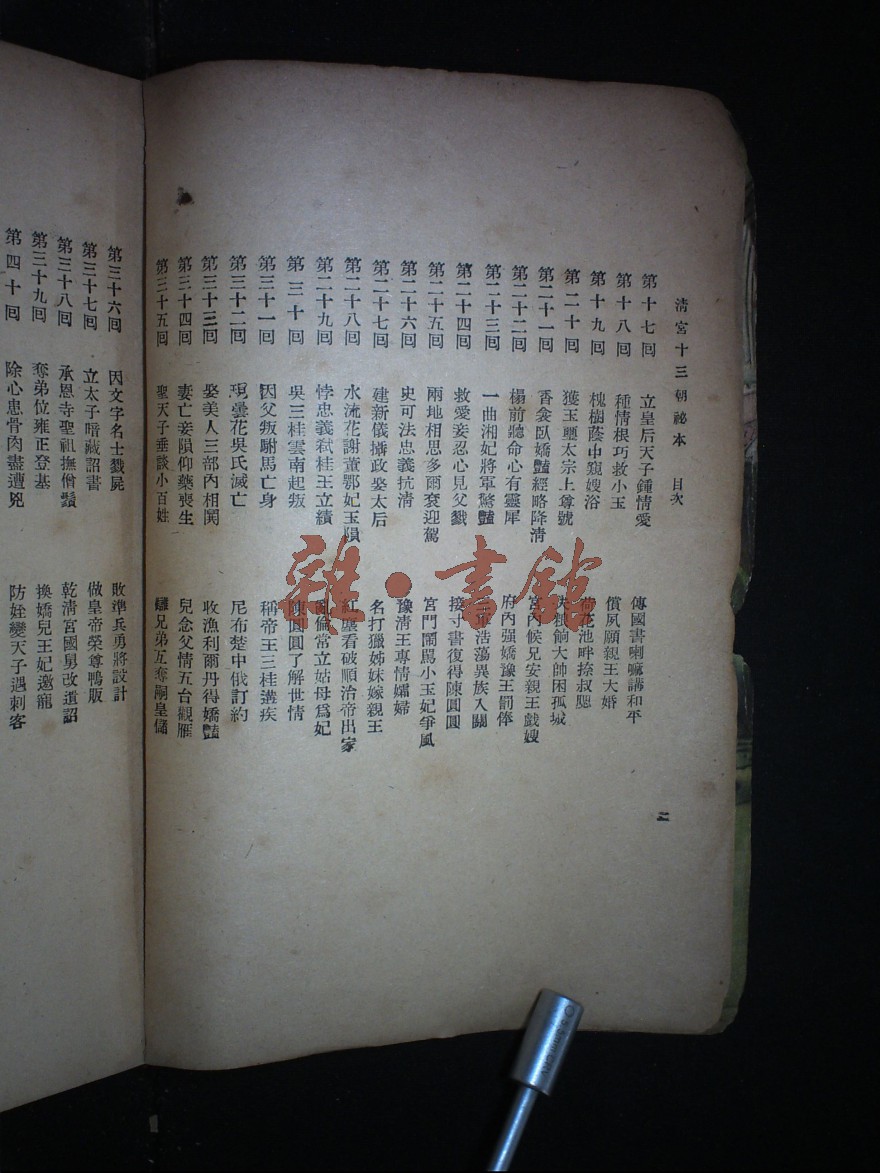 清宮十三朝祕本 目次
第十七回 立皇后天子鍾情愛 傳國書喇嘛講和平
第十八回 種情根巧救小玉 償夙願親王大婚
第十九回 槐樹蔭中窺嫂浴 荷花池畔捺叔腮
第二十回 獲玉璽太宗上尊號 大糧餉大帥困孤城
第二十一回 香衾臥嬌豔經略降清 宮內候兄安親王戲嫂
第二十二回 榻前聽命心有靈犀 府內强嬌豫王罰俸
第二十三回 一曲湘妃將軍驚豔 浩蕩異族入關
第二十四回 救愛妾忍心見父戮 接寸書復得陳圓圓
第二十五回 兩地相思多爾袞迎駕 宮門鬧罵小玉妃爭風
第二十六回 史可法忠義抗清 豫清王專情孀婦
第二十七回 建新儀攝政娶太后 名打獵姊妹嫁親王
第二十八回 水流花謝董鄂妃玉隕 紅塵看破順治帝出家
第二十九回 悖忠義弒桂王立績 亂倫常立姑母爲妃
第三十回 吳三桂雲南起叛 陳圓圓了解世情
第三十一回 因父叛駙馬亡身 稱帝王三桂遘疾
第三十二回 現曇花吳氏滅亡 尼布楚中俄訂約
第三十三回 娶美人三部內相鬨 收漁利爾丹得嬌豔
第三十四回 妻亡妾隕仰藥喪生 兒念父情五台觀雁
第三十五回 聖天子垂談小百姓 雖兄弟互奪嗣皇儲
二
第三十六回 因文字名士戮屍 敗準兵勇將設計
第三十七回 立太子暗藏詔書 做皇帝榮尊鴨販
第三十八回 承恩寺聖祖撫僧鬚 乾清宮國舅改遺詔
第三十九回 奪弟位雍正登基 換嬌兒王妃邀寵
第四十回 除心患骨肉盡遭兇 防姪變天子遇刺客
雜·書館